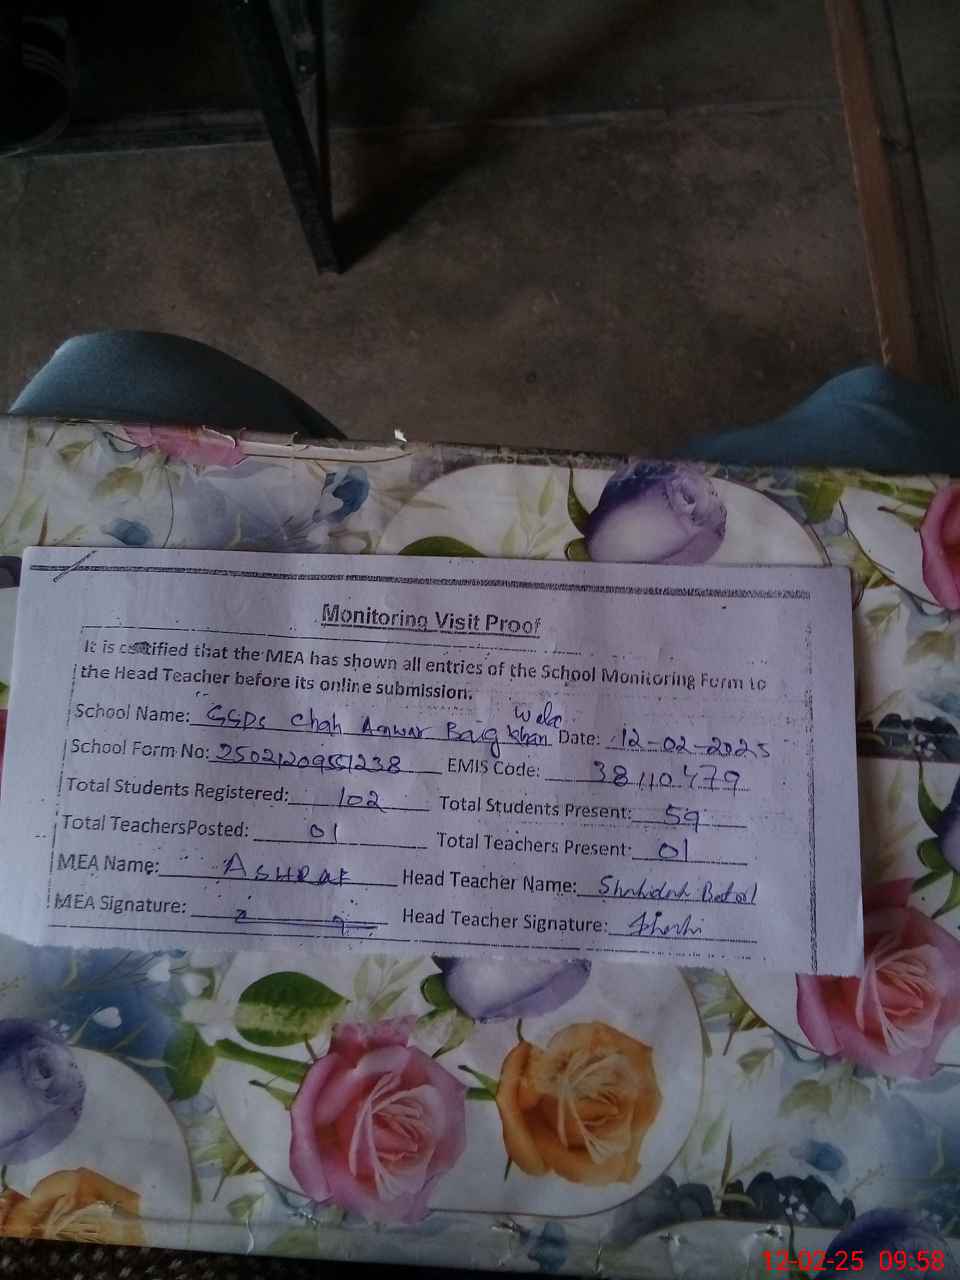 Monitoring Visit Proof
It is certified that the MEA has shown all entries of the School Monitoring Form to
the Head Teacher before its online submission.
School Name: Chah Anwar Baig Khan Wala Date: 12-02-2025
School Form No: EMIS Code: 38110479
Total Students Registered: 102 Total Students Present: 59
Total TeachersPosted: 01 Total Teachers Present: 01
MEA Name: ASHRAF Head Teacher Name: Batool
MEA Signature: Head Teacher Signature:
12-02-25 09:58